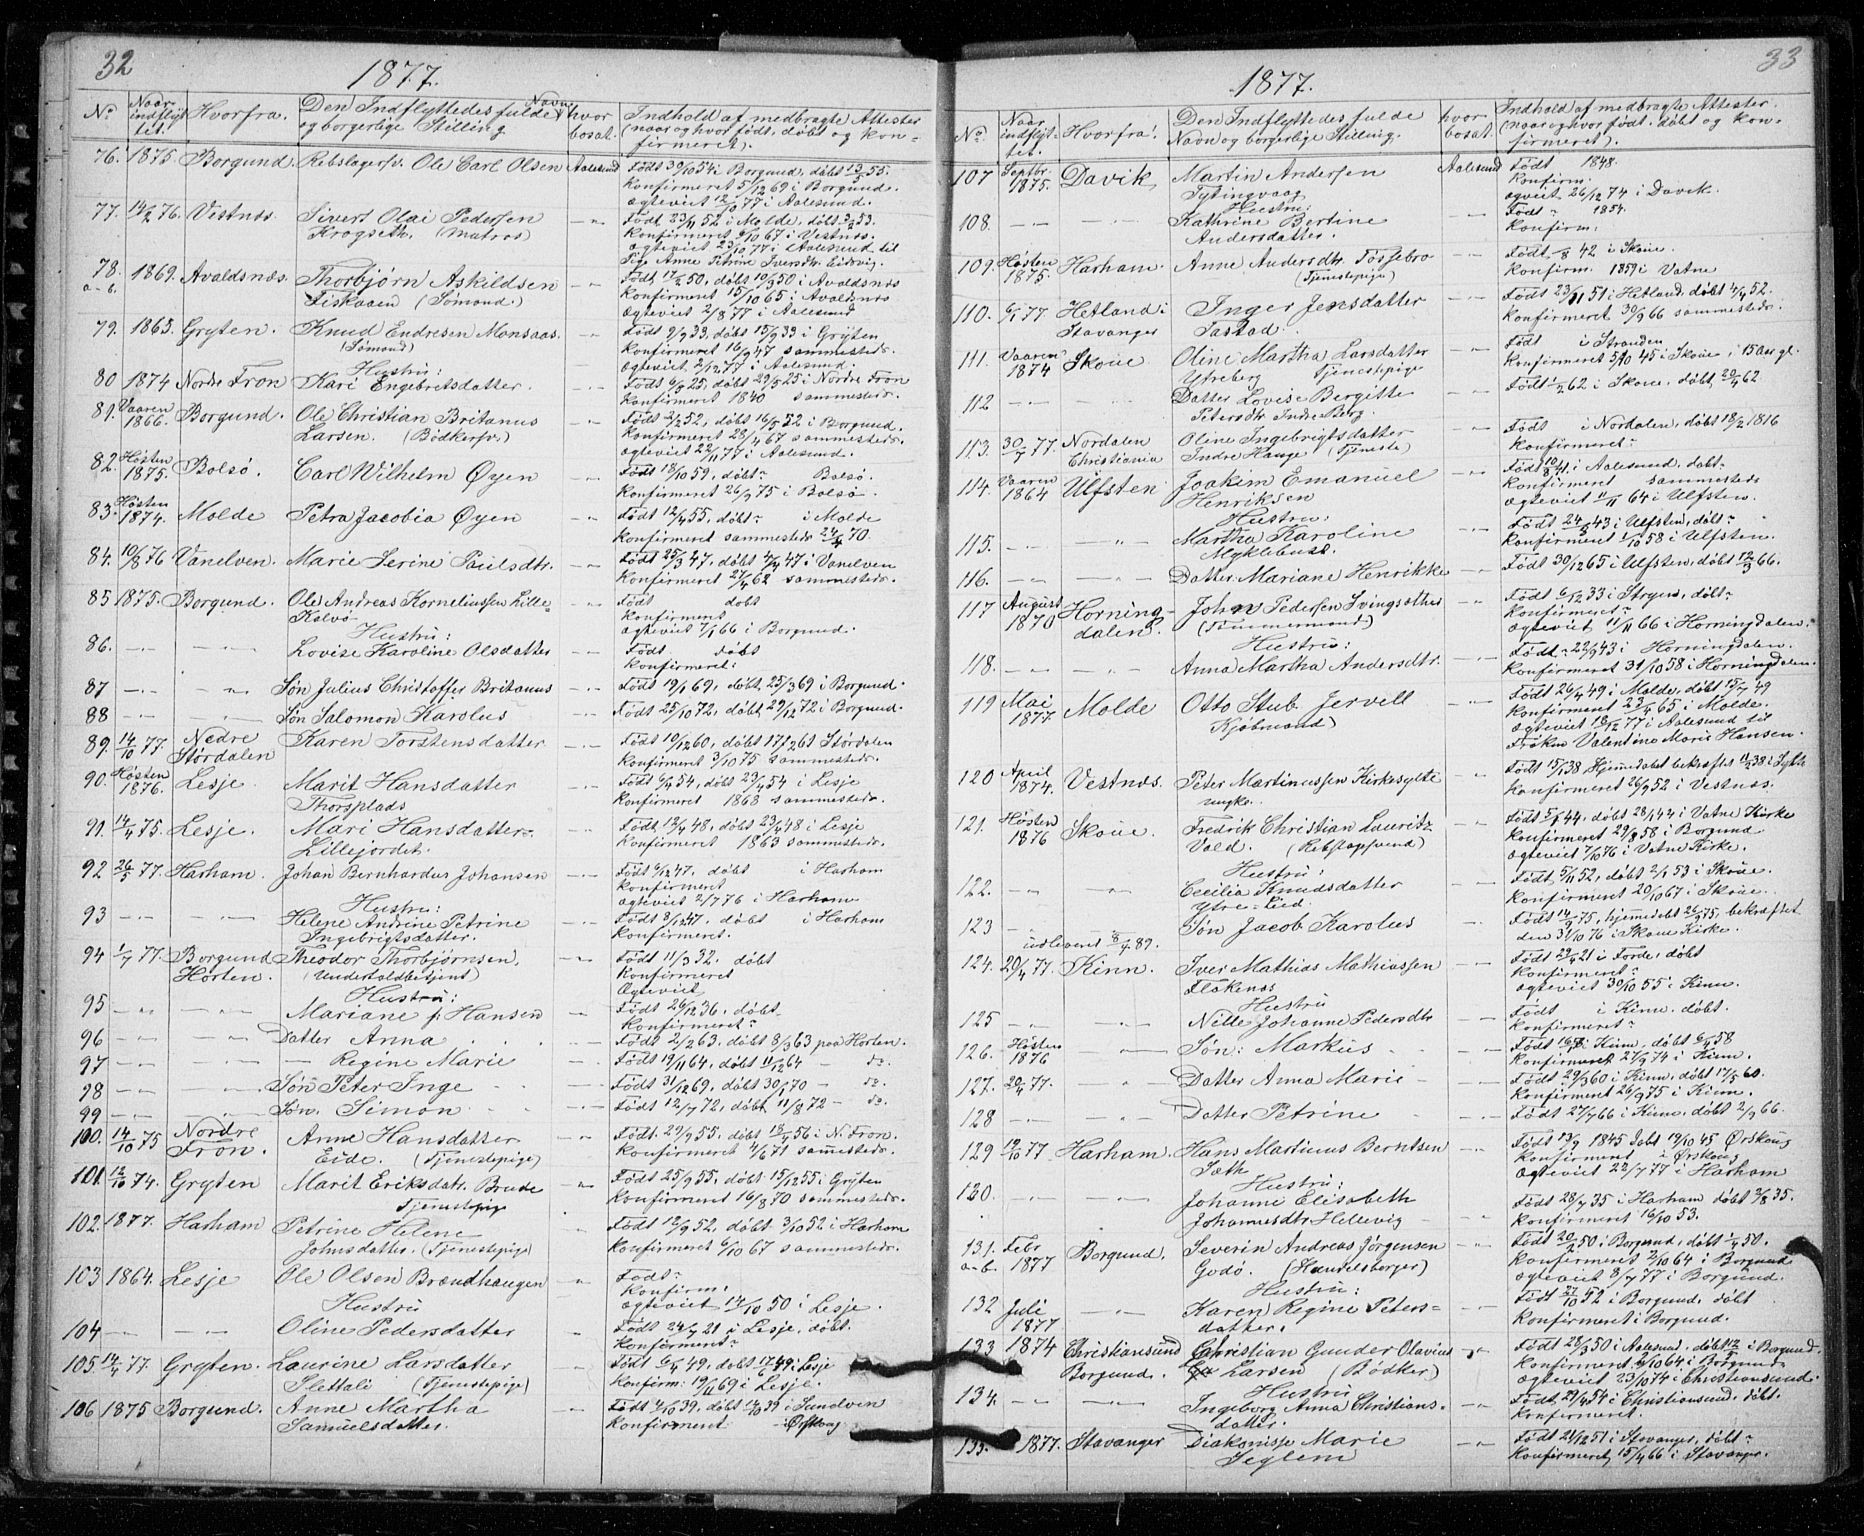 32
1877.
No
Naar indflyttet.
Hvorfra.
Den Indflyttedes fulde Navn og borgerlige Stilling
hvor bosat.
Indhold af medbragte Attester (naar og hvor født, døbt og konfirmeret).
76. 1875. Borgund. Rebslagersv. Ole Carl Olsen Aalesund Født 30/10 54 i Borgund, døbt 13/5 55.
Konfirmeret 5/12 69 i Borgund.
Ægteviet 12/10 77 i Aalesund.
77. 14/2 76. Vestnæs. Sivert Olai Pedersen Født 23/11 52 i Molde, døbt 53.
Krogseth. (Matros) Konfirmeret 67 i Vestnæs.
Ægteviet 23/10 77 i Aalesund til
Pige Anne Petrine Iversdtr. Eidsvig.
78. a-b. 1869. Avaldsnæs. Thorbjørn Askildsen Født 50, døbt 50 i Avaldsnæs
(Sømand.) Konfirmeret 15/10 65 i Avaldsnæs
Ægteviet 2/8 77 i Aalesund
79. 1863. Gryten. Knud Endresen Monsaas. Født 9/9 33, døbt 15/9 33 i Gryten
(Sømand) Konfirmeret 16/9 47 sammesteds.
Ægteviet 2/12 77 i Aalesund.
Hustru:
80 1874 Nordre Fron Kari Engebretsdatter. Født 25, døbt 29/5 25 i Nordre Fron
Konfirmeret 1840 sammesteds.
81. Vaaren 1866. Borgund. Ole Christian Britanus Født 52, døbt 16/5 52 i Borgund.
Larsen. (Bødkersv.) Konfirmeret 28/4 67 sammesteds.
Ægteviet 22/11 77 i Aalesund.
82. Høsten 1875. Bolsø. Carl Wilhelm Øyen Født 18/10 59, døbt Bolsø.
Konfirmeret 26/9 75 i Bolsø.
83. Høsten 1874. Molde Petra Jacobia Øyen Født 12/4 55, døbt i Molde
Konfirmeret sammesteds 70.
84. 10/8 76 Vanelven. Marie Serine Paulsdtr. Født 25/3 47, døbt 4/4 47 i Vanelven
Konfirmeret 62 sammesteds.
85 1875. Borgund. Ole Andreas Korneliussen Lille- Født døbt
Kalvø Konfirmeret
Ægteviet 7/1 66 i Borgund.
Hustru:
86. Lovise Karoline Olsdatter Født døbt
Konfirmeret:
87 Søn Julius Christoffer Britanus Født 19/1 69, døbt 25/3 69 i Borgund.
88 Søn Salomon Karolus Født 25/10 72, døbt 29/12 72 i Borgund.
89. 14/10 77. Nedre Størdalen Karen Torstensdatter Født 19/12 60, døbt 17/2 61 Størdalen
Konfirmeret 3/10 75 sammesteds.
90. Høsten 1876. Lesje. Marit Hansdatter Født 54, døbt 23/4 54 i Lesje
Thorsplads Konfirmeret 1868 sammesteds.
91. 14/4 75. Lesje. Mari Hansdatter Født 12/4 48, døbt 23/4 48 i Lesje
Lillejordet. Konfirmeret 1863 sammesteds.
92 26/5 77. Harham. Johan Bernhardus Johansen Født 47, døbt i Harham
Konfirmeret
Ægteviet 2/7 76 i Harham
Hustru:
93 Helene Andrine Petrine Født 8/1 47. døbt i Harham
Ingebrigtsdatter. Konfirmeret.
94 1/7 77. Borgund Horten. Theodor Thorbjørnsen. Født 11/3 32. døbt
(Underholdbetjent) Konfirmeret
Ægteviet
Hustru:
95 Mariane f. Hansen Født 26/12 36. døbt
Konfirmeret?
96 Datter Anna Født 2/2 63. døbt 8/3 63 paa Horten.
97 Regine Marie Født 19/11 64, døbt 11/12 64 do.
98 Søn Peter Inge Født 31/12 69, døbt 30/1 70 do.
99 Søn Simon Født 12/7 72, døbt 11/8 72 do.
100. 14/10 75 Nordre Fron. Anne Hansdatter Født 29/9 55, døbt 56 i N. Fron.
Eide. (Tjenestepige) Konfirmeret 71 sammesteds.
101. 12/10 74. Gryten Marit Eriksdatr. Brude Født 25/9 55. døbt 15/12 55 i Gryten
Tjenestepige Konfirmeret 16/8 70 sammesteds.
102. 1877. Harham Petrine Helene Født 12/9 52, døbt 3/10 52 i Harham
Johnsdatter. (Tjenestepige) Konfirmeret 6/10 67 sammesteds.
103 1864. Lesje Ole Olsen Brændhaugen Født
Konfirm:
Ægteviet 14/10 50 i Lesje.
Hustru
104 Oline Pedersdatter Født 24/7 21 i Lesje, døbt.
Konfirmeret
105. 14/4 77. Gryten. Laurine Larsdatter Født 49. døbt 49 i Lesje
Slettali (Tjenestepige) Konfirm: 19/11 69 i Lesje.
106 1875 Borgund. Anne Martha Født 39. døbt 39 i Sundven
Samuelsdatter. Konfirmeret Ørskoug
33
1877.
No
Naar indflyttet.
Hvorfra.
Den Indflyttedes fulde Navn og borgerlige Stilling.
hvor bosat.
Indhold af medbragte Attester. (naar og hvor født, døbt og konfirmeret).
107 Septbr. 1875. Davik Martin Andersen Aalesund Født 1848.
Tytingvaag Konfirm.
Ægteviet 26/12 74 i Davik.
Hustru:
108. Kathrine Bertine Født 1854.
Andersdatter. Konfirm:
109. Høsten 1875. Harham. Anne Andersdtr. Fossebro Født 42 i Skoue.
(Tjenestepige) Konfirm. 1859 i Vatne
110. 77 Hetland i Stavanger Inger Jensdatter Født 23/11 51 i Hetland, døbt 4/4 52.
Jastad. Konfirmeret 30/9 66 sammesteds.
111. Vaaren 1874 Skoue Oline Martha Larsdatter Født i Stranden
Ytreberg Tjenestepige Konfirmeret 5/10 45 i Skoue, 15 Aar gl.
112 Datter Lovise Bergitte Født 62 i Skoue, døbt 20/4 62
Petersdtr. Indreberg.
113. 30/7 77. Nordalen Christiania Oline Ingebrigtsdatter Født i Nordalen, døbt 18/2 1816
Indre Hauge (Tjeneste) Konfirmeret
114. Vaaren 1864 Ulfsten Joakim Emanuel Født 10/8 41. i Aalesund, døbt
Henriksen Konfirmeret sammesteds
Ægteviet 11/11 64 i Ulfsten.
Hustru:
115. Martha Karoline Født 24/5 43 i Ulfsten, døbt
Myklebust. Konfirmeret 1/10 58 i Ulfsten.
116. Datter Mariane Henrikke Født 30/12 65 i Ulfsten, døbt 12/3 66.
117 August 1870 Horningdalen. Johan Pedersen Født 6/12 33 i Stryen, døbt
(Tømmermand) Konfirmeret
Ægteviet 11/11 66 i Horningdalen.
Hustru:
118. Anna Martha Andersdtr. Født 22/9 43 i Horningdalen.
Konfirmeret 31/10 58 i Horningdalen.
119 Mai 1877 Molde Otto Stub Jervell Født 26/4 49 i Molde, døbt 15/7 49
Kjøbmand) Konfirmeret 23/4 65 i Molde.
Ægteviet 18/12 77 i Aalesund til
Frøken Valentine Marie Hansen.
120 April 1874. Vestnæs. Peter Martinussen Kirkesylte Født 15/1 38 Hjemmedøbt bekræftet 11/2 38 i Sylte
ungk. Konfirmeret 26/9 52 i Vestnæs.
121. Høsten 1876 Skoue. Fredrik Christian Lauritz Født 44, døbt 28/1 44 i Vatne Kirke
Vold. (Rebslagersvend) Konfirmeret 29/8 58 i Borgund
Ægteviet 7/10 76 i Vatne Kirke.
Hustru:
122. Cecilia Knudsdatter Født 5/11 52, døbt 2/1 53 i Skoue.
Ytre-Lied. Konfirmeret 20/10 67 i Skoue.
123 Søn Jacob Karolus Født 14/2 75, hjemmedøbt 26/2 75, bekræftet
udleveret 8/4 89. den 31/10 76 i Skoue Kirke.
124. 20/4 77. Kinn. Iver Mathias Mathiassen Født 29/9 21 i Førde, døbt
Flokenæs Konfirmeret
Ægteviet 30/10 55 i Kinn.
Hustru
125 Nille Johanne Pedersdtr Født i Kinn, døbt.
Konfirmeret
126. Høsten 1876 Søn: Markus Født i Kinn, døbt 58
Konfirmeret 27/9 74 i Kinn.
127. 20/4 77. Datter Anna Marie Født 29/3 60 i Kinn, døbt 17/5 60.
Konfirmeret 26/9 75 i Kinn.
128 Datter Petrine Født 27/7 66 i Kinn, døbt 2/9 66.
129 19/10 77 Harham. Hans Martinus Berntsen Født 13/9 1845 Døbt 19/10 45 Ørskoug
Sæth Konfirmeret i Ørskoug
Ægteviet 22/7 77 i Harham
Hustru:
130. Johanne Elisabeth Født 28/7 35 i Harham døbt 35.
Johannesdtr. Hellevig Konfirmeret 16/10 53.
131. a-b. Febr 1877 Borgund. Severin Andreas Jørgensen Født 20/2 50 i Borgund, døbt 50.
Godø. (Handelsborger) Konfirmeret 2/10 64 i Borgund
Ægteviet 8/7 77 i Borgund.
Hustru:
132 Juli 1877 Karen Regine Peters- Født 27/10 52 i Borgund, døbt
datter. Konfirmeret i Borgund.
133 1874 Christiansund Borgund. Christian Gunder Olavius Født 28/3 50 i Aalesund, døbt i Borgund.
Larsen (Bødker) Konfirmeret 2/10 64 i Borgund
Ægteviet 23/10 74 i Christiansund.
Hustru
134. Ingeborg Anna Christians- Født 29/4 54 i Christiansund, døbt.
datter. Konfirmeret.
135. 1877. Stavanger Diakonisse Marie Født 21/12 51 i Stavanger, døbt
Seglem Konfirmeret 15/4 66 i Stavanger.